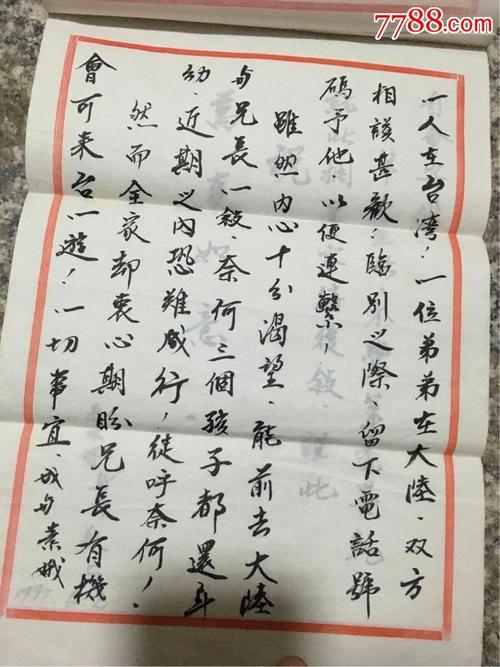 7788.com
一人在台湾！一位弟弟在大陸、双方
相談甚歡！臨別之際留下電話號
碼予他以便連繫！
雖然內心十分渴望、能前去大陸
与兄長一敘奈何三個孩子都還年
幼、近期之內恐難成行！徒呼奈何！
然而全家却衷心期盼兄長有機
會可来台一遊！一切事宜、我与素娥